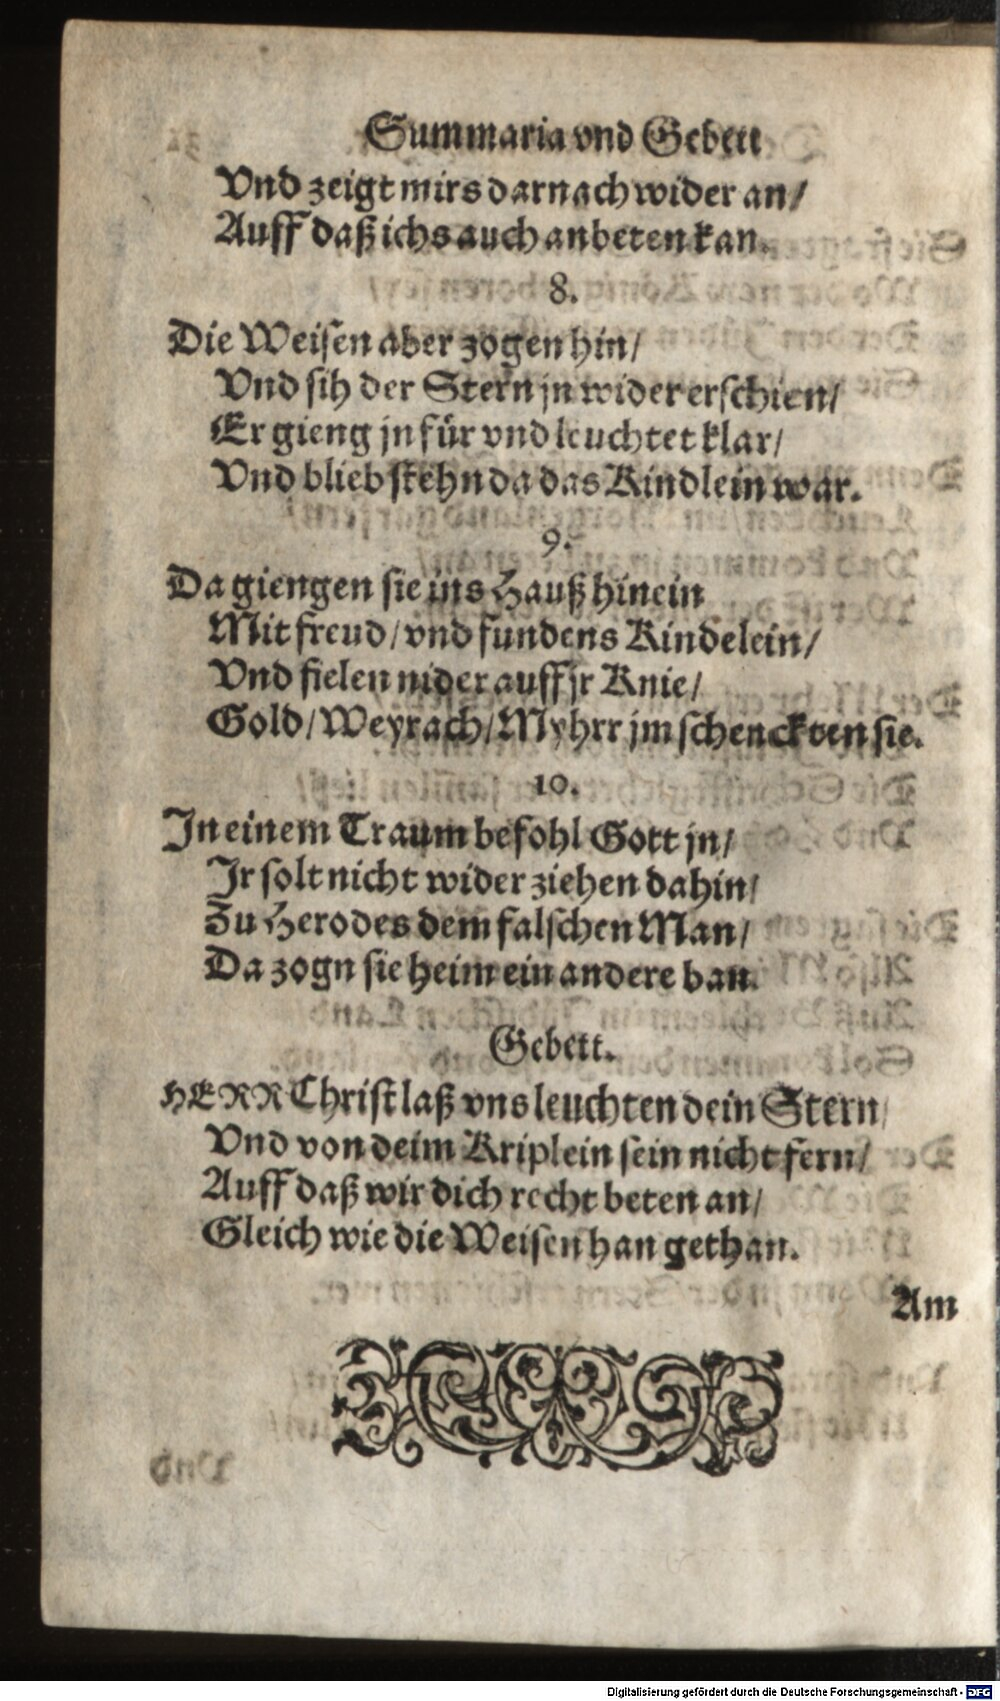 Summaria vnd Gebett
Vnd zeigt mirs darnach wider an/
Auff daß ichs auch anbeten kan.
8.
Die Weisen aber zogen hin/
Vnd sih der Stern jn wider erschien/
Er gieng jn für vnd leuchtet klar/
Vnd blieb stehn da das Kindlein war.
9.
Da giengen sie ins Hauß hinein
Mit freud/ vnd fundens Kindelein/
Vnd fielen nider auff jr Knie/
Gold/ Weyrach/ Myhrr jm schenckten sie.
10.
In einem Traum befohl Gott jn/
Ir solt nicht wider ziehen dahin/
Zu Herodes dem falschen Man/
Da zogn sie heim ein andere ban.
Gebett.
HERR Christ laß vns leuchten dein Stern/
Vnd von deim Kriplein sein nicht fern/
Auff daß wir dich recht beten an/
Gleich wie die Weisen han gethan.
Am
Digitalisierung gefördert durch die Deutsche Forschungsgemeinschaft - DFG